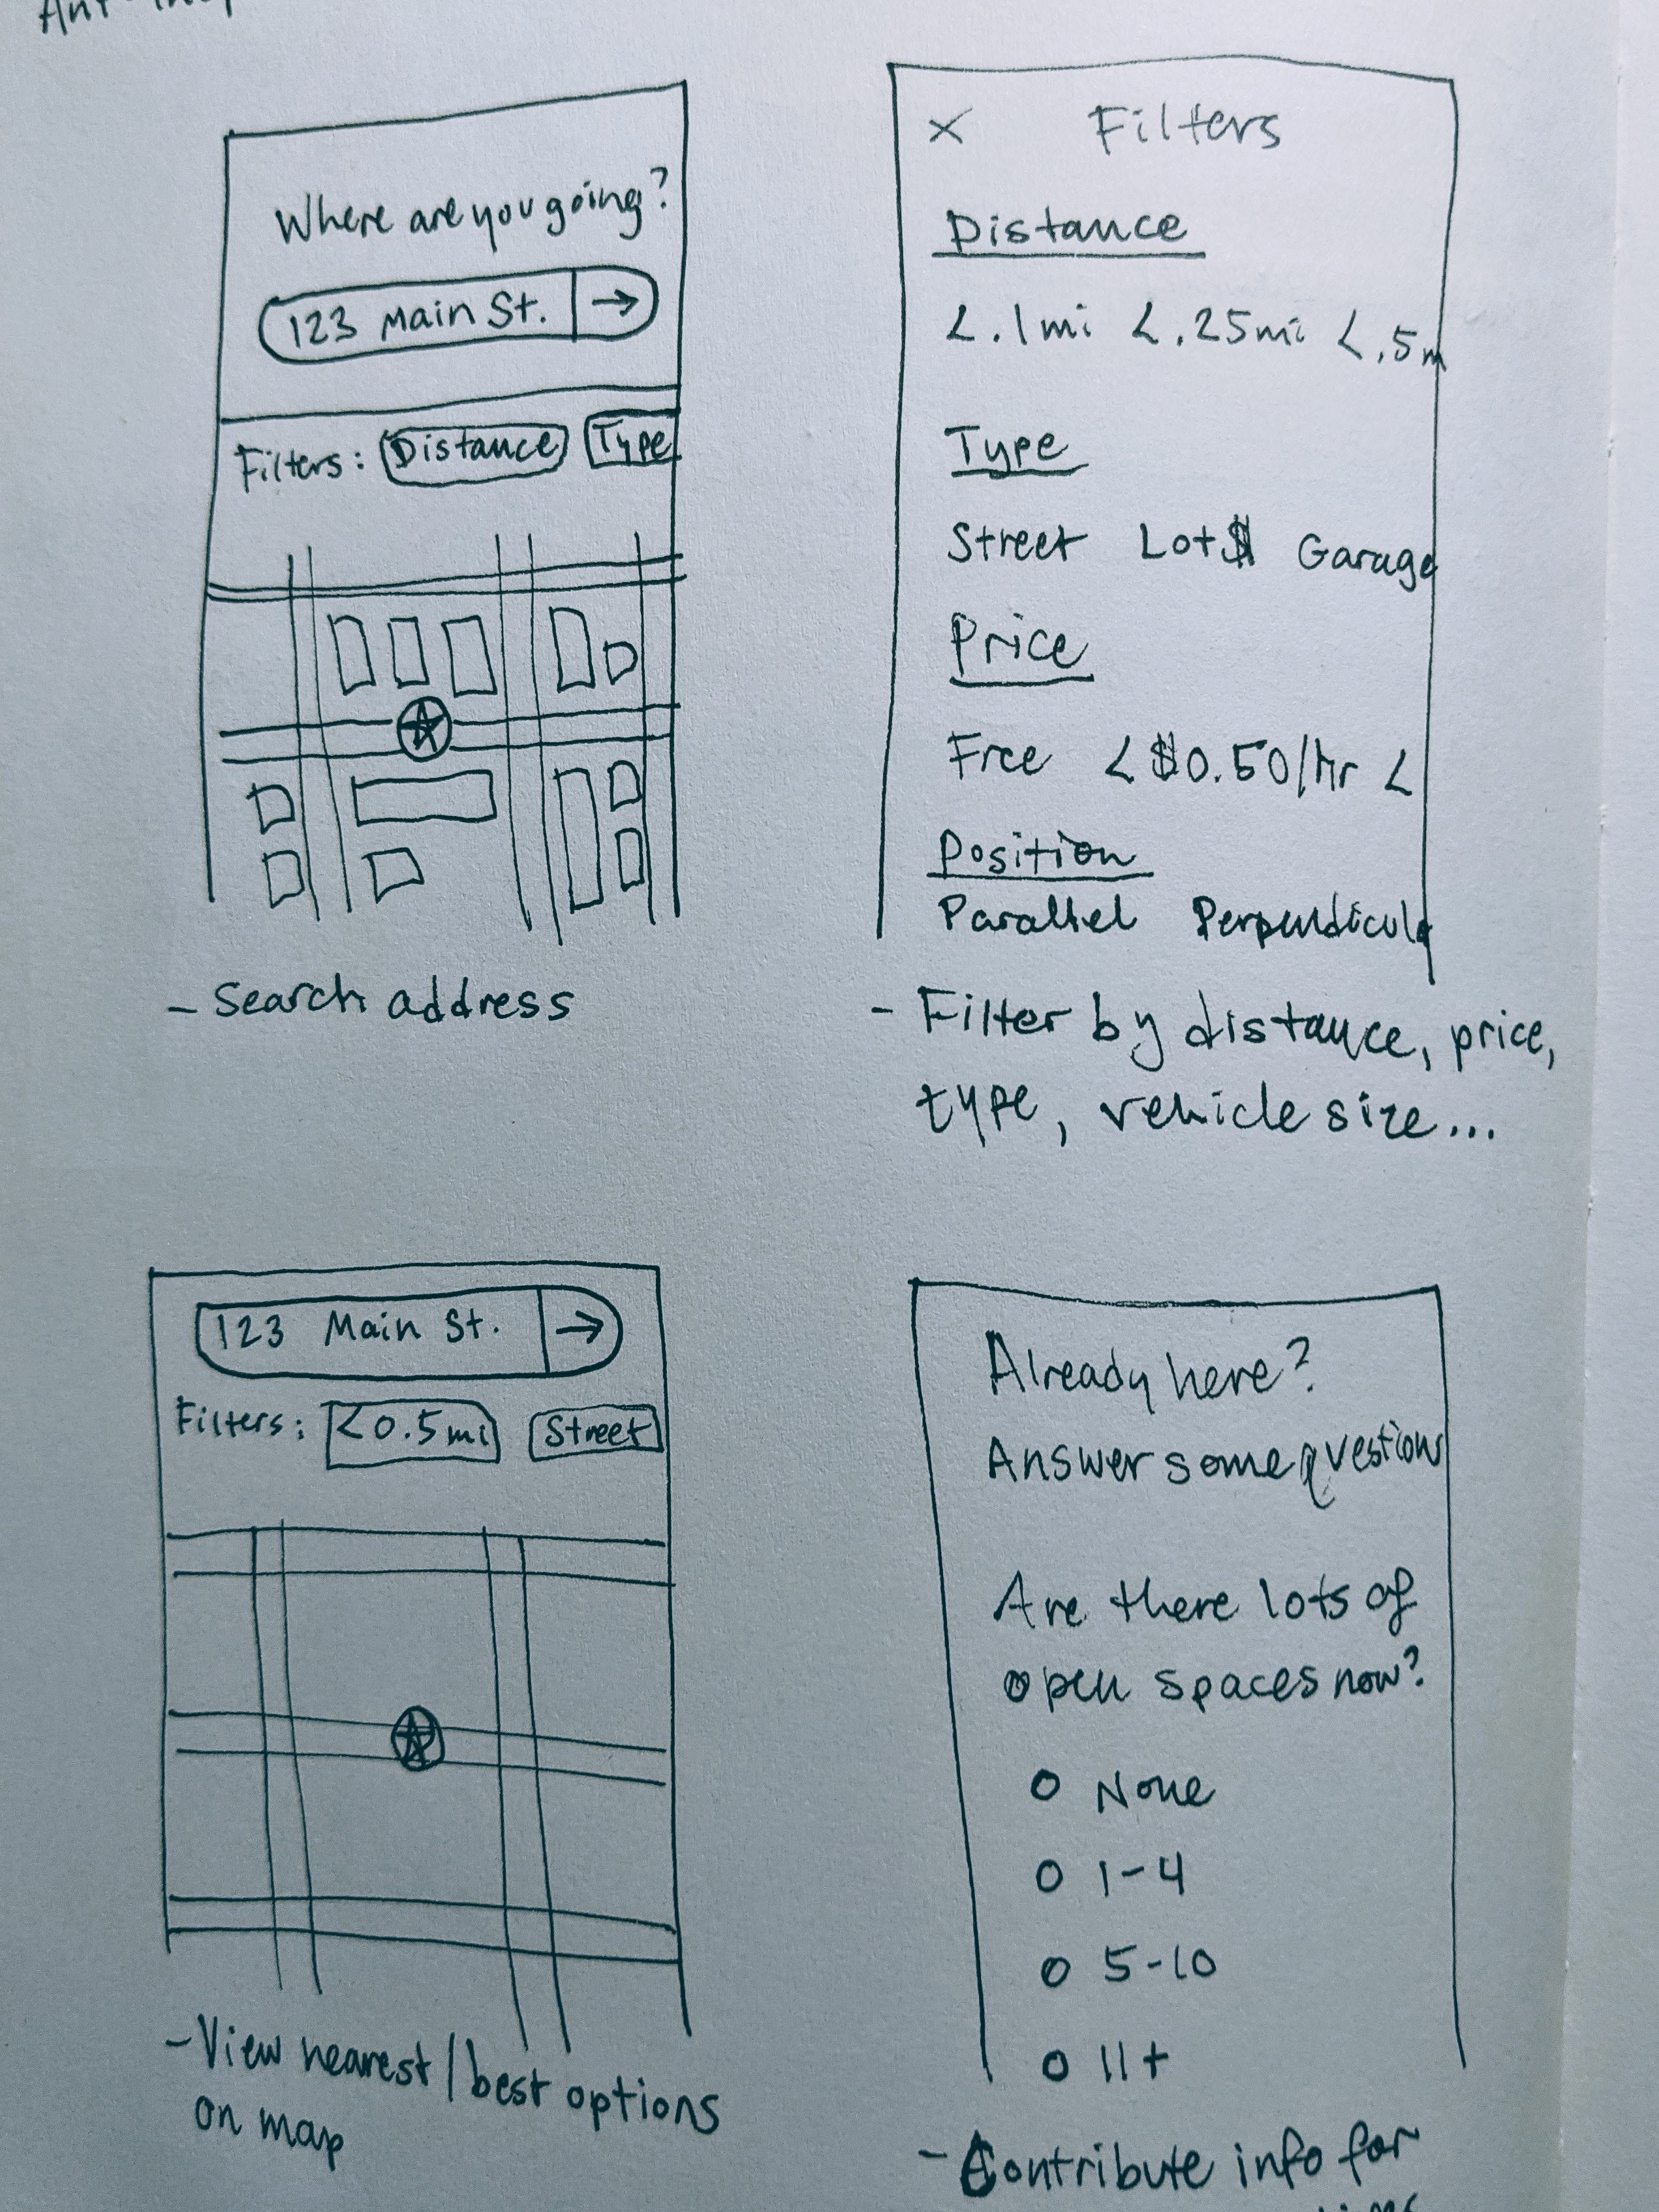 Where are you going?
123 Main St. →
Filters: Distance Type
- Search address
X Filters
Distance
<.1mi <.25mi <.5m
Type
Street Lot$ Garage
Price
Free <$0.50/hr <
Position
Parallel Perpendicula
- Filter by distance, price,
type, vehicle size...
123 Main St. →
Filters: <0.5mi Street
- View nearest/best options
on map
Already here?
Answer some questions
Are there lots of
open spaces now?
O None
O 1-4
O 5-10
O 11+
- Contribute info for